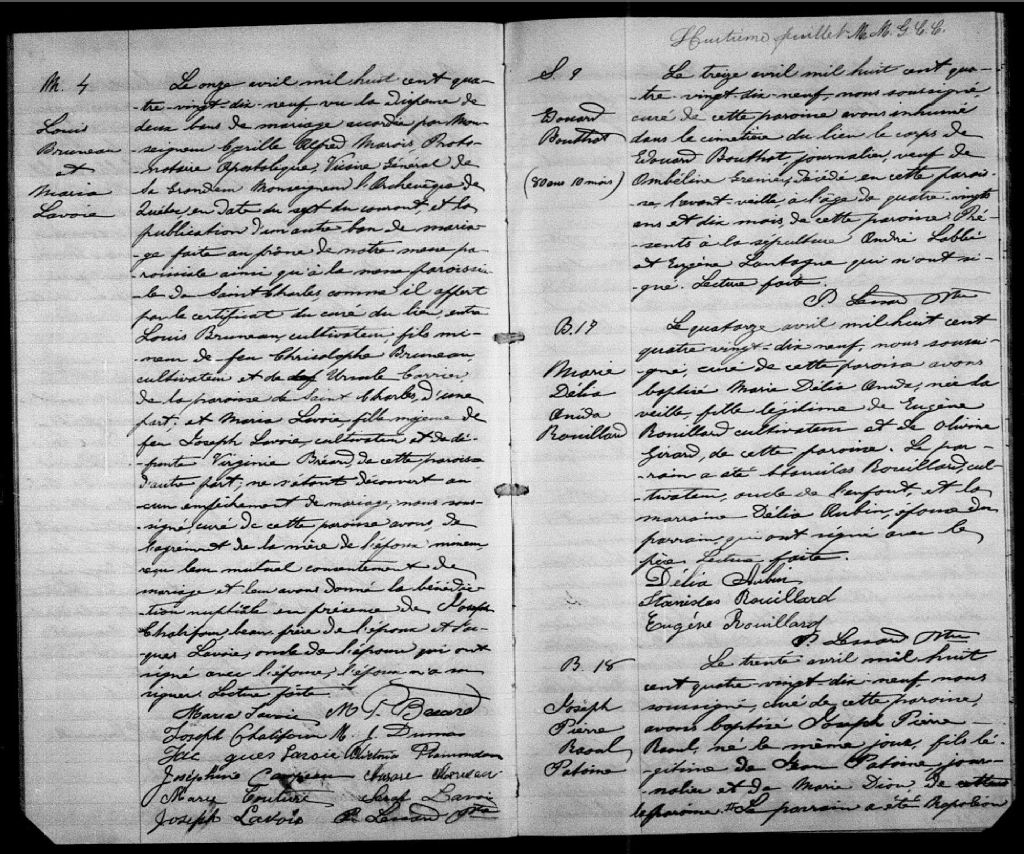 M. 4
Louis
Bruneau
et
Maria
Lavoie
Le onze avril mil huit cent qua-
tre-vingt-dix-neuf, vu la dispense de
deux bans de mariage accordée par Mon-
seigneur Cyrille Alfred Marois, Proto-
notaire Apostolique, Vicaire Général de
Sa Grandeur Monseigneur l'Archevêque de
Québec, en date du sept du courant, et la
publication d'un autre ban de maria-
ge faite au prône de notre messe pa-
roissiale ainsi qu'à la messe paroissia-
le de Saint Charles comme il appert
par le certificat du curé du lieu, entre
Louis Bruneau, cultivateur, fils mi-
neur de feu Christophe Bruneau,
cultivateur et de Ursule Carrier,
de la paroisse de Saint Charles, d'une
part; et Maria Lavoie, fille majeure de
feu Joseph Lavoie, cultivateur et de dé-
funte Virginie Bréard, de cette paroisse
d'autre part; ne s'étant découvert au-
cun empêchement de mariage, nous sous-
signé, curé de cette paroisse avons, de
l'agrément de la mère de l'époux mineur,
reçu leur mutuel consentement de
mariage et leur avons donné la bénédic-
tion nuptiale en présence de Joseph
Chalifour beau frère de l'époux et Jac-
ques Lavoie, oncle de l'épouse qui ont
signé avec l'épouse, l'époux n'a su
signer. Lecture faite
Maria Lavoie M J. Breard
Joseph Chalifour M. J. Dumas
Jac ques Lavoie Victoria Plamondon
Joséphine
Mary Couture Seraf Lavoie
Joseph Lavoie P. Lessard Ptre
Huitième feuillet M. M. G. C. C.
S. 9
Edouard
Bouthot
(80 ans 10 mois)
Le treize avril mil huit cent qua-
tre-vingt-dix-neuf, nous soussigné
curé de cette paroisse avons inhumé
dans le cimetière du lieu le corps de
Edouard Bouthot, journalier, veuf de
Ombéline Grenier, décédé en cette parois-
se, l'avant-veille, à l'âge de quatre-vingts
ans et dix mois, de cette paroisse. Pré-
sents à la sépulture André Labbé
et Eugène Lantagne qui n'ont si-
gné. Lecture faite.
P. Lessard Ptre
B. 17
Marie
Délia
Anida
Rouillard
Le quatorze avril mil huit cent
quatre-vingt-dix-neuf, nous soussi-
gné, curé de cette paroisse avons
baptisé Marie Délia Anida, née la
veille, fille légitime de Eugène
Rouillard cultivateur et de Olivine
Girard, de cette paroisse. Le par-
rain a été Stanislas Rouillard, cul-
tivateur, oncle de l'enfant, et la
marraine Délia Aubin, épouse du
parrain, qui ont signé avec le
père. Lecture faite
Délia Aubin
Stanislas Rouillard
Eugéne Rouillard
P. Lessard Ptre
B. 18
Joseph
Pierre
Raoul
Patoine
Le trente avril mil huit
cent quatre-vingt-dix-neuf, nous
soussigné, curé de cette paroisse,
avons baptisé Joseph Pierre
Raoul, né le même jour, fils lé-
gitime de Jean Patoine, jour-
nalier et de Marie Dion, de cette
paroisse. Le parrain a été Napoléon